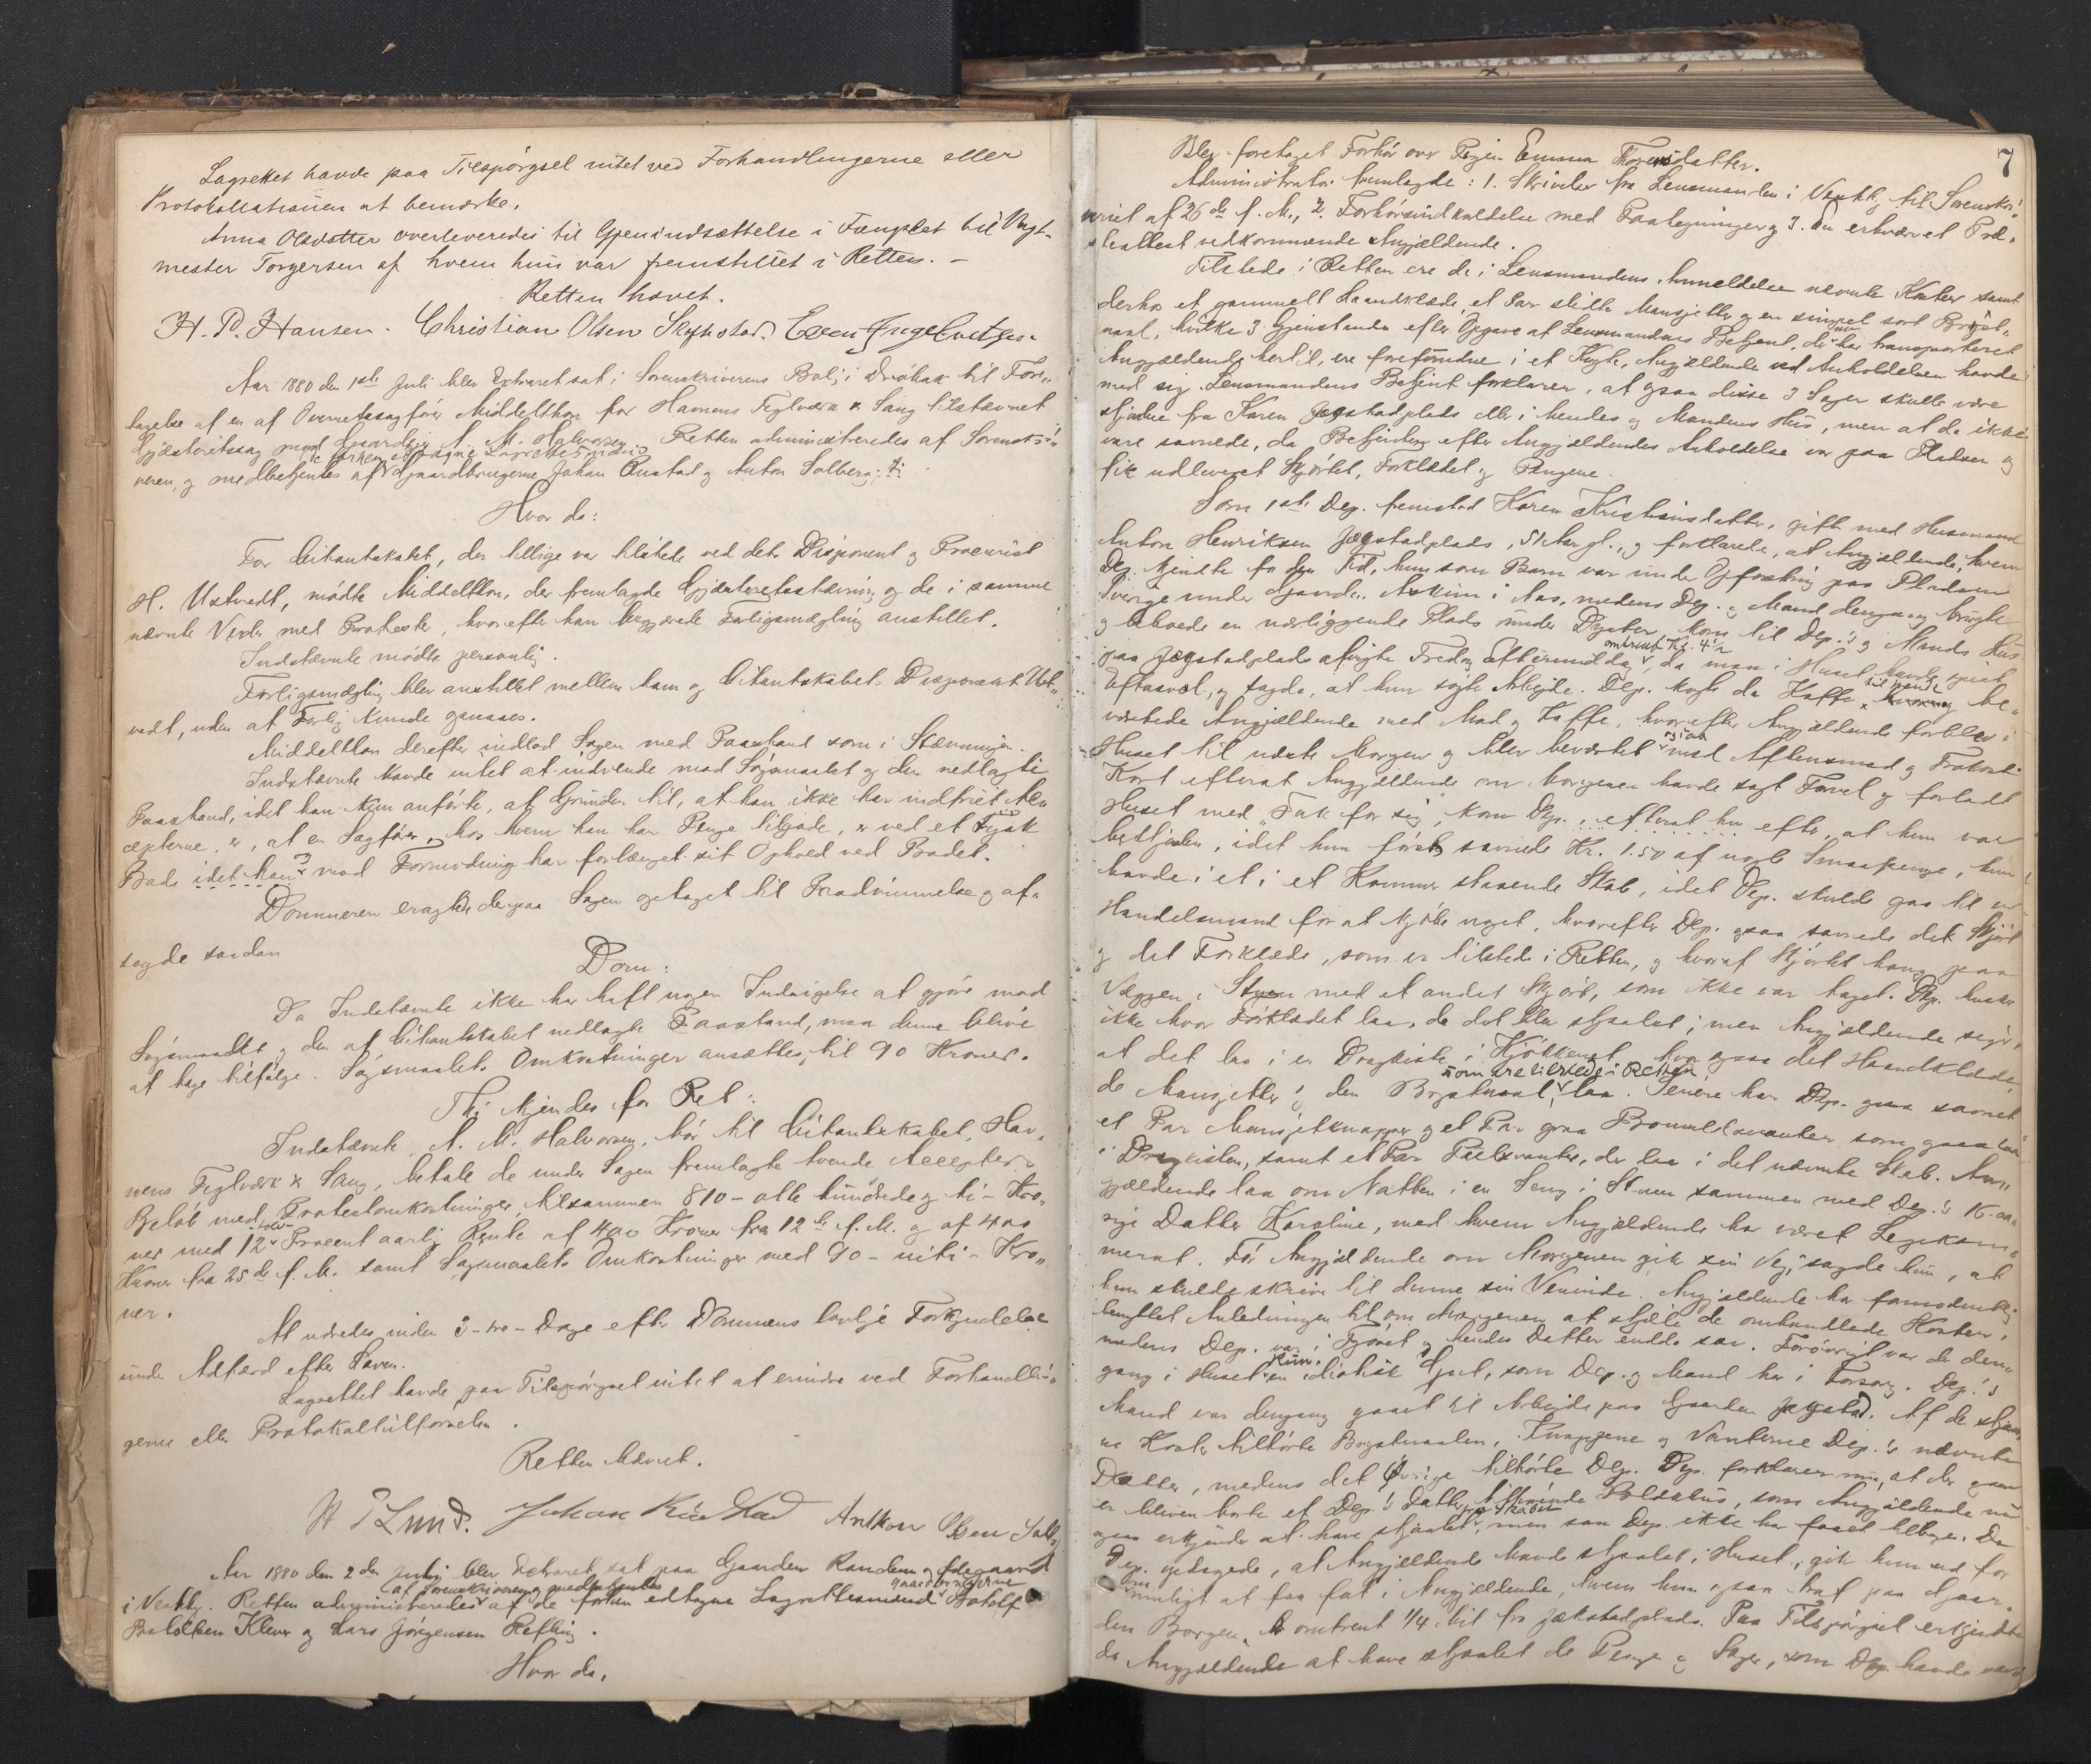 Lagrettet havde paa Tilspørgsel intet ved Forhandlingerne eller
Protokollationen at bemærke.
Anna Olsdatter overleveredes til Gjenindsættelse i Fængslet til Vagt-
mester Torgersen af hvem hun var fremstillet i Retten. –
Retten hævet.
H. P. Hansen. Christian Olsen
Aar 1880 den 1ste Juli blev Extraret sat i Sorenskriverens Bolig i Drøbak til Fore-
tagelse af en af Overretssagfører Middelthon for Havnens Teglværk & Saug tilstævnet
Gjæsteretssag mod Gaardeier A. M. Halvorsen. Retten administreredes af Sorenskri-
veren, og medbetjentes af de forhen edtagne Lagrettesmænd Gaardbrugerne Johan Rustad og Anton Solberg:
Hvor da:
For Citantskabet, der tillige var tilstede ved dets Disponent og Procurist
H. Ustvedt, mødte Middelthon, der fremlagde Gjæsteretsstævning og de i samme
nævnte Vexler med Protester, hvorefter han begjærede Forligsmægling anstillet.
Indstævnte mødte personlig.
Forligsmægling blev anstillet mellem ham og Citantskabets Disponent Ust-
vedt, uden at Forlig kunde opnaaes.
Middelthon derefter indlod Sagen med Paastand som i Stævningen.
Indstævnte havde intet at indvende mod Søgsmaalet og den nedlagte
Paastand, idet han kun anførte, at Grunden til, at han ikke har indfriet Ac-
cepterne, er, at en Sagfører, hos hvem han har Penge tilgode, er ved et tysk
Bad, idet han mod Formodning har forlænget sit Ophold ved Badet.
Dommeren eragtede derpaa Sagen optaget til Paadømmelse og af-
sagde saadan
Dom:
Da Indstævnte ikke har haft nogen Indsigelse at gjøre mod
Søgsmaalet og den af Citantskabet nedlagte Paastand, maa denne blive
at tage tilfølge. Søgsmaalets Omkostninger ansættes til 90 Kroner.
Thi kjendes for Ret:
Indstævnte, A. M. Halvorsen, bør til Citantskabet, Hav-
nens Teglværk & Saug, betale de under Sagen fremlagte tvende Accepters
Beløb med Protestomkostninger, tilsammen 810 – otte hundrede og ti – Kro-
ner med 12 – tolv – Procent aarlig Rente af 400 Kroner fra 12te f. M. og af 400
Kroner fra 25de f. M. samt Søgsmaalets Omkostninger med 90 – niti – Kro-
ner.
At udredes inden 3 – tre – Dage efter Dommens lovlige Forkyndelse
under Adfærd efter Loven.
Lagrettet havde paa Tilspørgsel intet at erindre ved Forhandlin-
gerne eller Protokoltilførselen.
Retten hævet.
Lund. Johan Rustad Anthon Olsen
Aar 1880 den 2den Juli blev Extraret sat paa Gaarden Randem
i Vestby. Retten administreredes af Sorenskriveren og medbetjentes af de forhen edtagne Lagrettesmænd Gaardbrugerne
Klever og Lars Jørgensen
Hvor da,
7
Blev foretaget Forhør over Pigen Emma Thorersdatter.
Administrator fremlagde: 1. Skrivelse fra Lensmanden i Vestby til Sorenskri-
veriet af 26de f. M., 2. Forhørsindkaldelse med Paategninger og 3. En erhvervet Præ-
steattest vedkommende Angjældende.
Tilstede i Retten ere de i Lensmandens Anmeldelse nævnte Koster samt
derhos et gammelt Haandklæde, et Par slidte Mansjetter og en simpel sort Bryst-
naal, hvilke 3 Gjenstande efter Opgave af Lensmandens Betjent, der har transporteret
Angjældende hertil, ere forefundne i et Knyte, Angjældende ved Anholdelsen havde
med sig. Lensmandens Betjent forklarer, at ogsaa disse 3 Sager skulle være
stjaalne fra Karen Jøgstadplads eller i hendes og Mandens Hus, men at de ikke
vare savnede, da Betjenten efter Angjældendes Anholdelse var paa Pladsen og
fik udleveret Skjørtet, Forklædet og Pengene.
Som 1ste Dep. fremstod Karen Kristiansdatter, gift med Husmand
Anton Henriksen Jøgstadplads, 51 Aar gl., og forklarede, at Angjældende, hvem
Dep. kjendte fra den Tid, hun som Barn var under Opfostring paa Pladsen
under Gaarden Askim i Aas, medens Dep. og Mand dengang brugte
og beboede en nærliggende Plads under Dyster, kom til Dep.s og Mands Hus
paa Jøgstadplads afvigte Fredag Eftermiddag omtrent Kl. 4, da man i Huset havde spist
Eftasvel, og sagde, at hun søgte Arbeide. Dep. kogte da Kaffe til hende og be-
værtede Angjældende med Mad og Kaffe, hvorefter Angjældende forblev i
Huset til næste Morgen og blev beværtet ogsaa med Aftensmad og Frokost.
Kort efterat Angjældende om Morgenen havde sagt Farvel og forladt
Huset med "Tak for sig", kom Dep. efter, at hun var
bestjaalen, idet hun først savnede Kr. 1.50 af norske Smaapenge, hun
havde i et i et Kammer staaende Skab, idet Dep. skulde gaa til en
Handelsmand for at kjøbe noget, hvorefter Dep. ogsaa savnede det Skjørt
og det Forklæde, som er tilstede i Retten, og hvoraf Skjørtet hang paa
Væggen i Stuen med et andet Skjørt, som ikke var taget. Dep. husker
ikke hvor Forklædet laa, da det blev stjaalet; men Angjældende siger,
at det laa i en Dragkiste i Kjøkkenet, hvor ogsaa det Haandklæde,
de Mansjetter og den Brystnaal, som ere tilstede i Retten, laa. Senere har Dep. ogsaa savnet
et Par Mansjetknapper og et Par graa Bomuldsvanter som ogsaa laa
i Dragkisten, samt et Par Pulsvanter, der laa i det nævnte Skab. An-
gjældende laa om Natten i en Seng i Stuen sammen med Dep.s 16-aa-
rige Datter Karoline, med hvem Angjældende har været Legekam-
merat. Før Angjældende om Morgenen gik sin Vei, sagde hun, at
hun skulde skrive til denne sin Veninde. Angjældende har formodentlig
benyttet Anledningen til om Morgenen at stjæle de omhandlede Koster,
medens Dep. var i Fjøset og hendes Datter endda sov. Forøvrigt var der den-
gang i Huset kun en idiotisk Gut, som Dep. og Mand har i Forsorg. Dep.s
Mand var dengang gaaet til Arbeide paa Gaarden Jøgstad. Af de stjaal-
ne Koster tilhørte Brystnaalen, Knappene og Vanterne Dep.s nævnte
Datter, medens det Øvrige tilhørte Dep. Dep. forklarer nu, at der ogsaa
er bleven borte et Dep.s Datter tilhørende, som Angjældende nu
ogsaa erkjender at have stjaalet, men som Dep. ikke har faaet tilbage. Da
Dep. opdagede, at Angjældende havde stjaalet i Huset, gik hun ud for
om muligt at faa fat i Angjældende, hvem hun ogsaa traf paa Gaar-
den Borgen, omtrent 1/4 Mil fra Jøkstadplads. Paa Tilspørgsel erkjendte
da Angjældende at have stjaalet de Penge og Sager, som Dep. havde